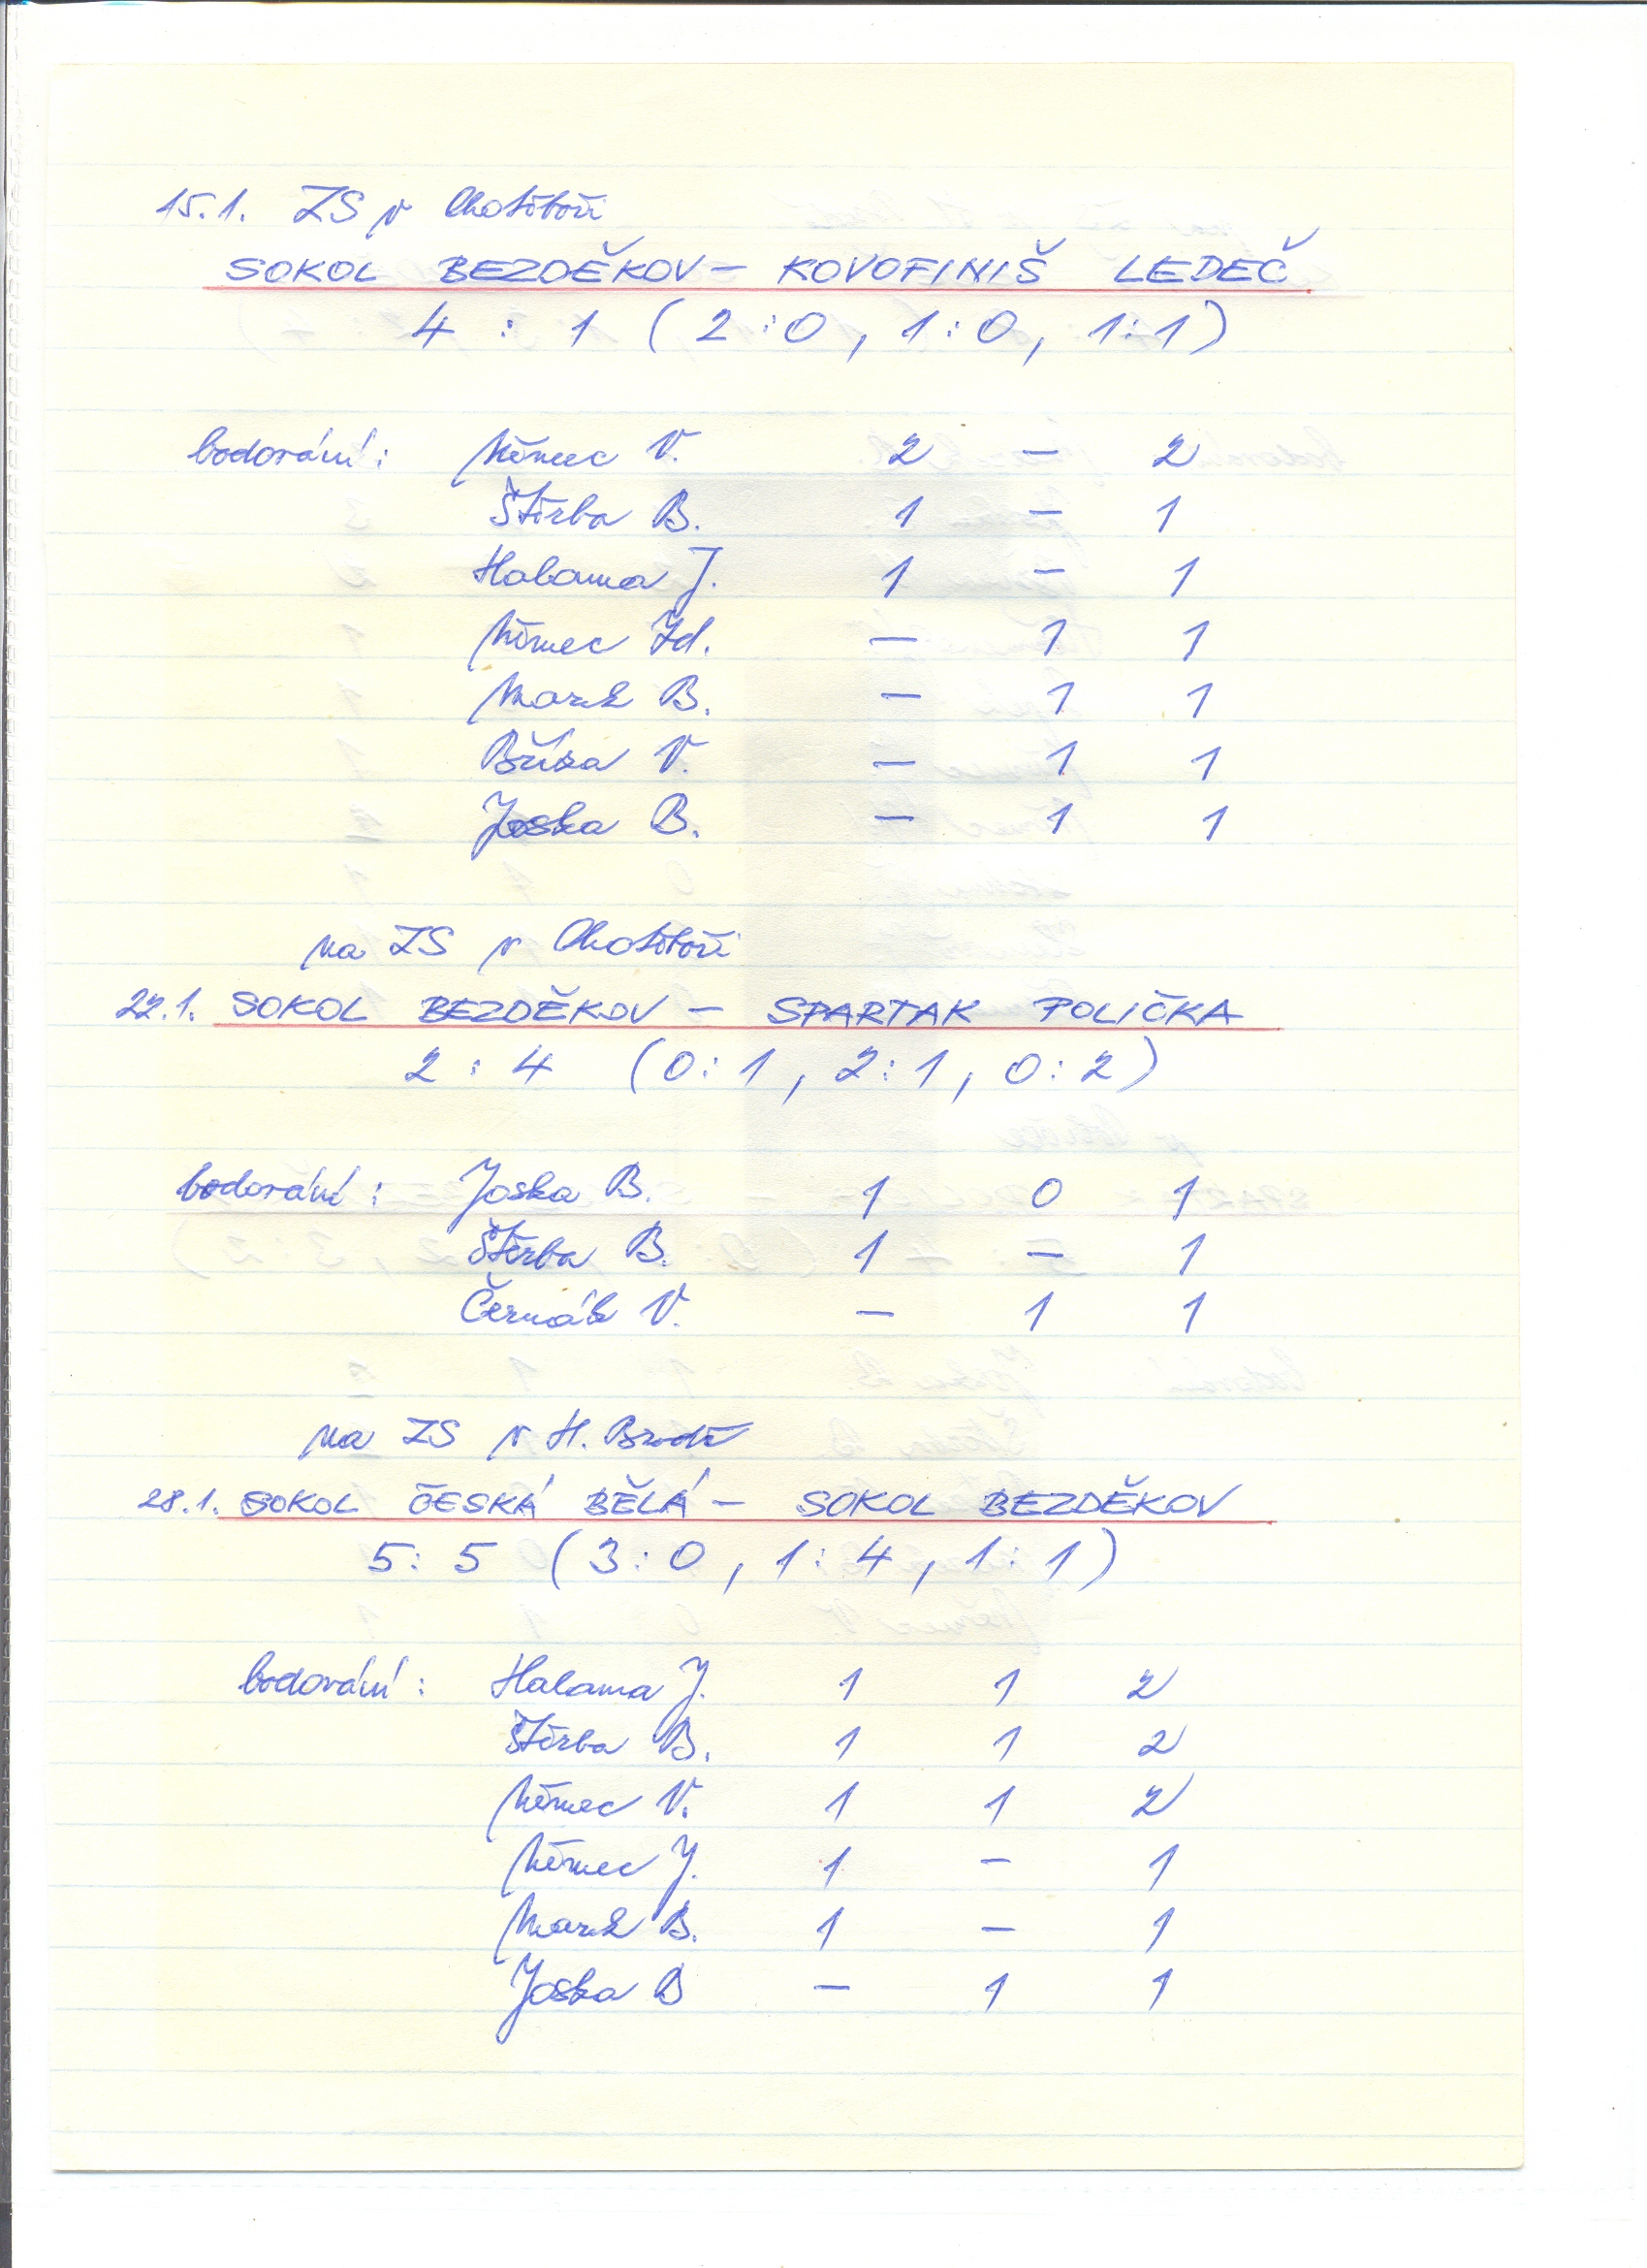 15.1. ZS v Chotěboři
SOKOL BEZDĚKOV – KOVOFINIŠ LEDEČ
4 : 1 ( 2:0 , 1:0 , 1:1 )
bodování : Němec V. 2 – 2
Štěrba B. 1 – 1
Halama J. 1 – 1
Němec Zd. – 1 1
Marek B. – 1 1
Bříza V. – 1 1
Joska B. – 1 1
na ZS v Chotěboři
22.1. SOKOL BEZDĚKOV – SPARTAK POLIČKA
2 : 4 ( 0:1 , 2:1 , 0:2 )
bodování : Joska B. 1 0 1
Štěrba B. 1 – 1
Černák V. – 1 1
na ZS v H. Brodě
28.1. SOKOL ČESKÁ BĚLÁ – SOKOL BEZDĚKOV
5 : 5 ( 3:0 , 1:4 , 1:1 )
bodování : Halama J. 1 1 2
Štěrba B. 1 1 2
Němec V. 1 1 2
Němec J. 1 – 1
Marek B. 1 – 1
Joska B – 1 1